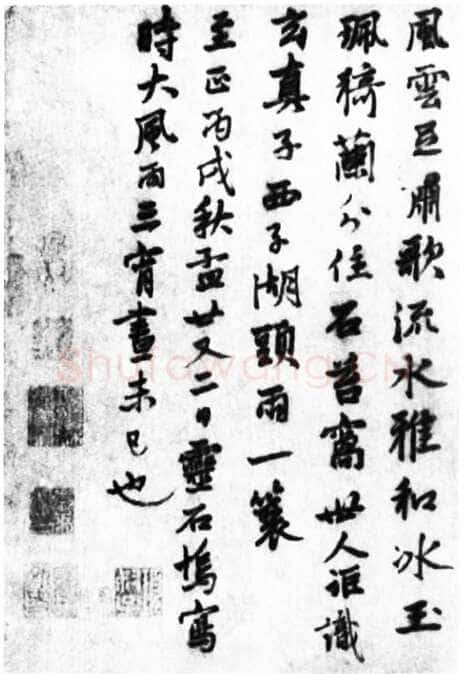 風雲足嘯歌流水雅和冰玉
珮蘭分住石苔窩世人詎識
玄真子西子湖頭雨一簑
至正丙戌秋孟廿又二日靈石塢寫
時大風雨三宵晝未已也
Shufawang.CN